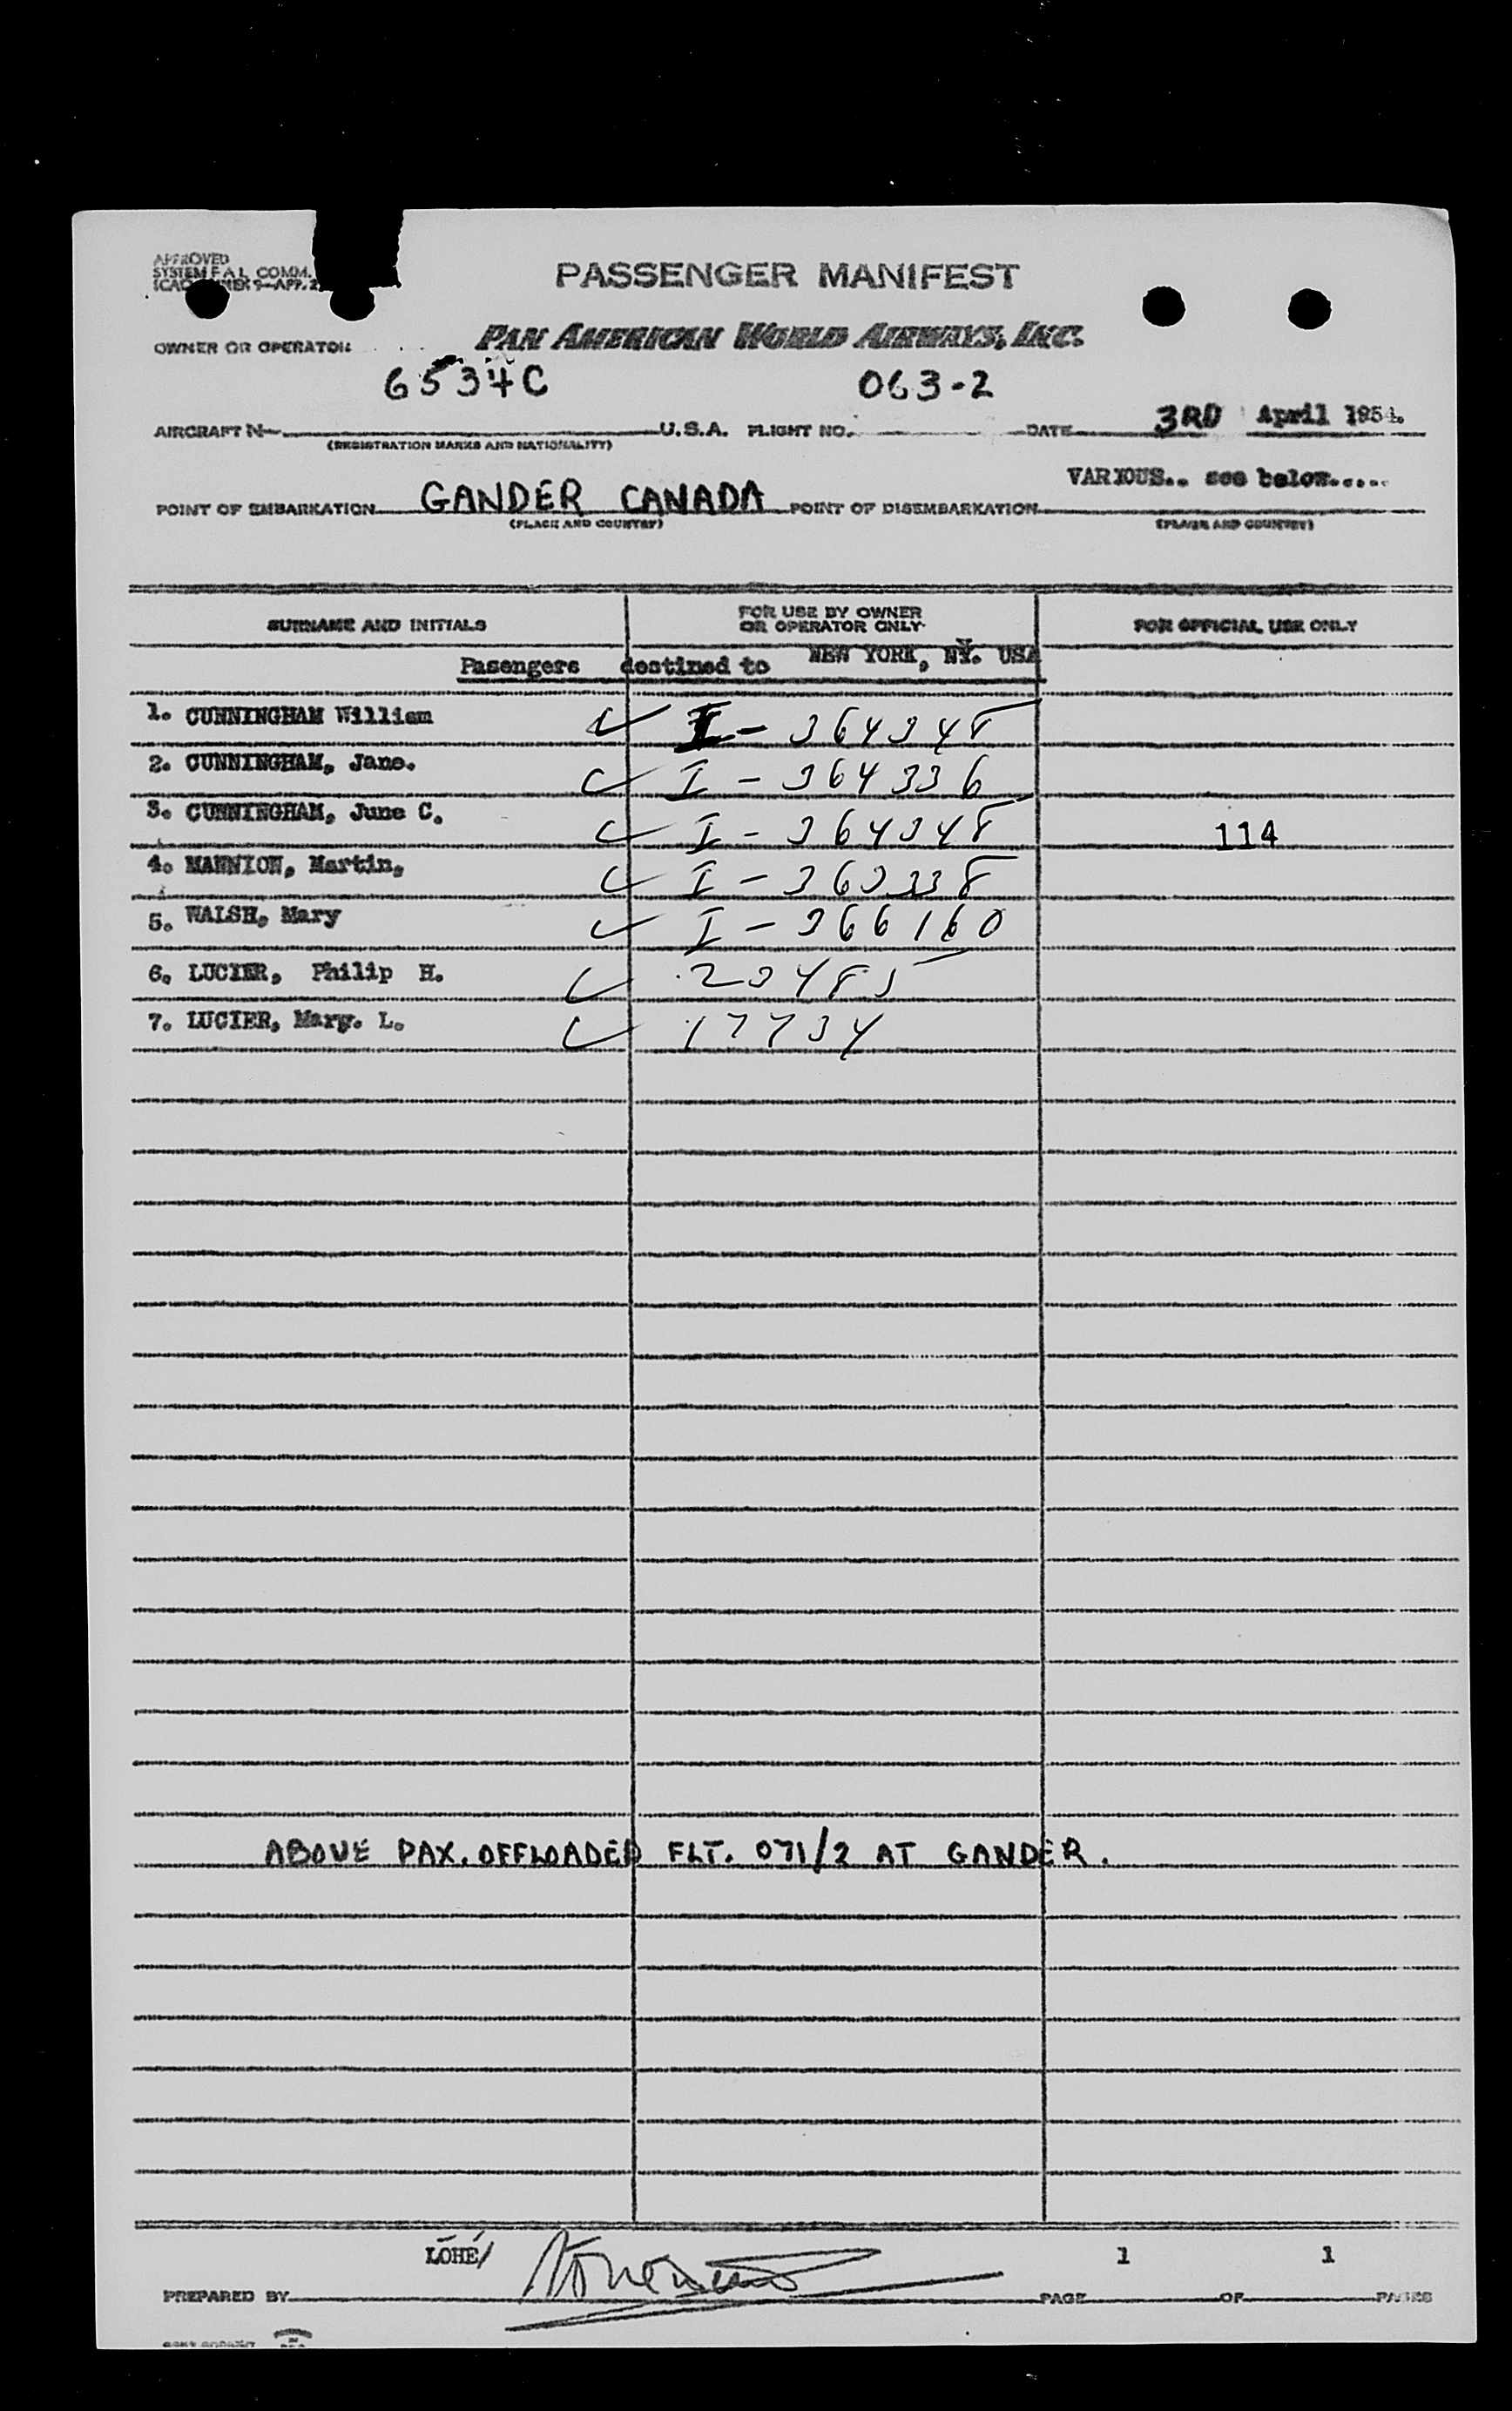 APPROVED
SYSTEM F A L COMM.
PASSENGER MANIFEST
OWNER OR OPERATOR PAN AMERICAN WORLD AIRWAYS, INC.
6534C 063-2
AIRCRAFT N U.S.A. FLIGHT NO. DATE 3RD April 1954.
(REGISTRATION MARKS AND NATIONALITY)
VARIOUS.. see below.....
POINT OF EMBARKATION GANDER CANADA POINT OF DISEMBARKATION
(PLACE AND COUNTRY) (PLACE AND COUNTRY)
SURNAME AND INITIALS FOR USE BY OWNER OR OPERATOR ONLY FOR OFFICIAL USE ONLY
Pasengers destined to NEW YORK, NY. USA
1. CUNNINGHAM William I - 364348
2. CUNNINGHAM, Jane. I - 364336
3. CUNNINGHAM, June C. I - 364348 114
4. MANNION, Martin, I - 363338
5. WALSH, Mary I - 366160
6. LUCIER, Philip H. 23485
7. LUCIER, Mary. L. 17734
ABOVE PAX. OFFLOADED FLT. 071/2 AT GANDER.
LOHE/
1 1
PREPARED BY PAGE OF PAGES